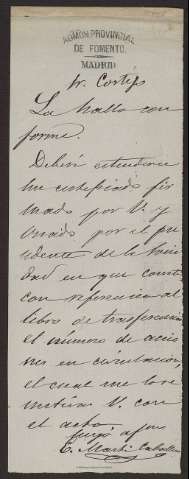 ADMÓN PROVINCIAL
DE FOMENTO.
MADRID
Sr. Cortijo
La hallo con
forme.
Deberá estenderse
un certificado fir
mado por V. y
visado por el pre
sidente de la Socie
dad en que conste
con referencia al
libro de trasferencias
el número de accio
nes en circulación,
el cual me lo re
mitirá V. con
el acta
suyo afmo
E. Martí Caballero